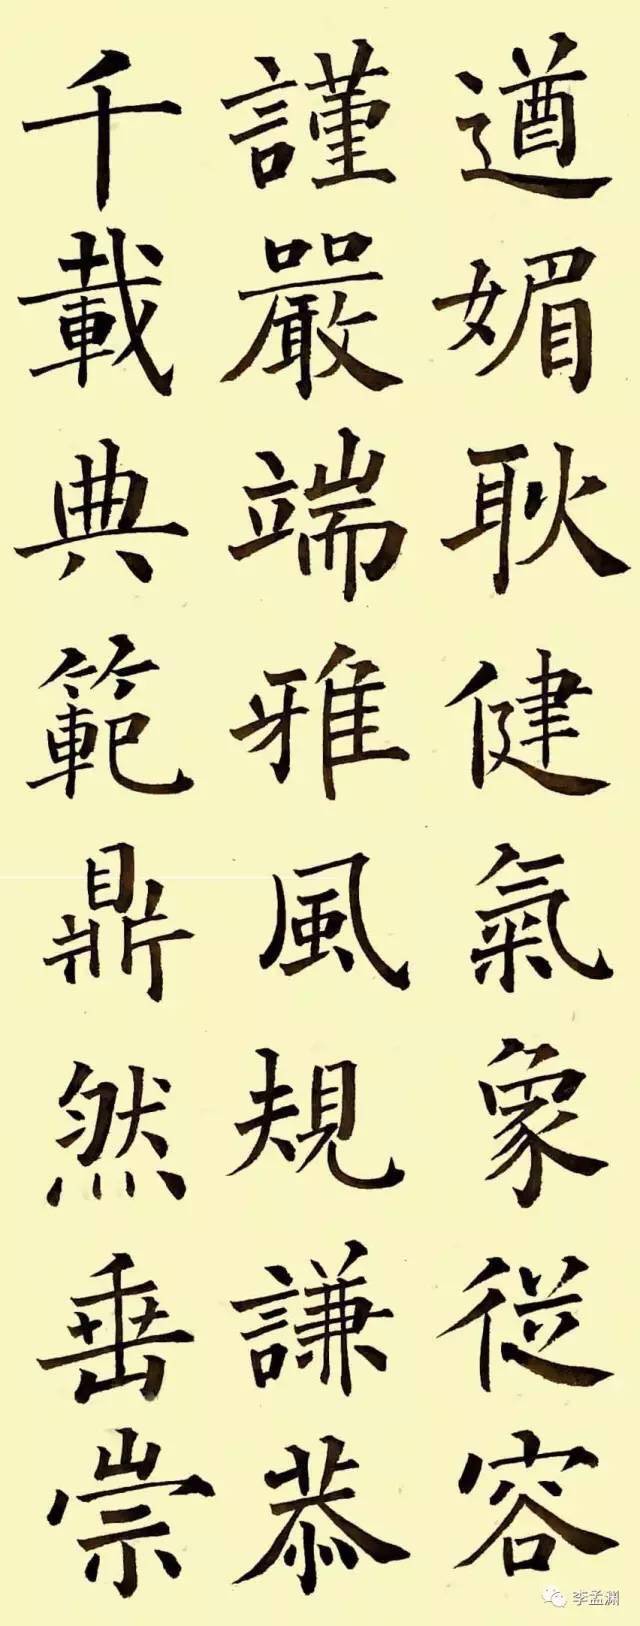 遒媚耿健氣象從容
謹嚴端雅風規謙恭
千載典範鼎然垂崇
李孟渊